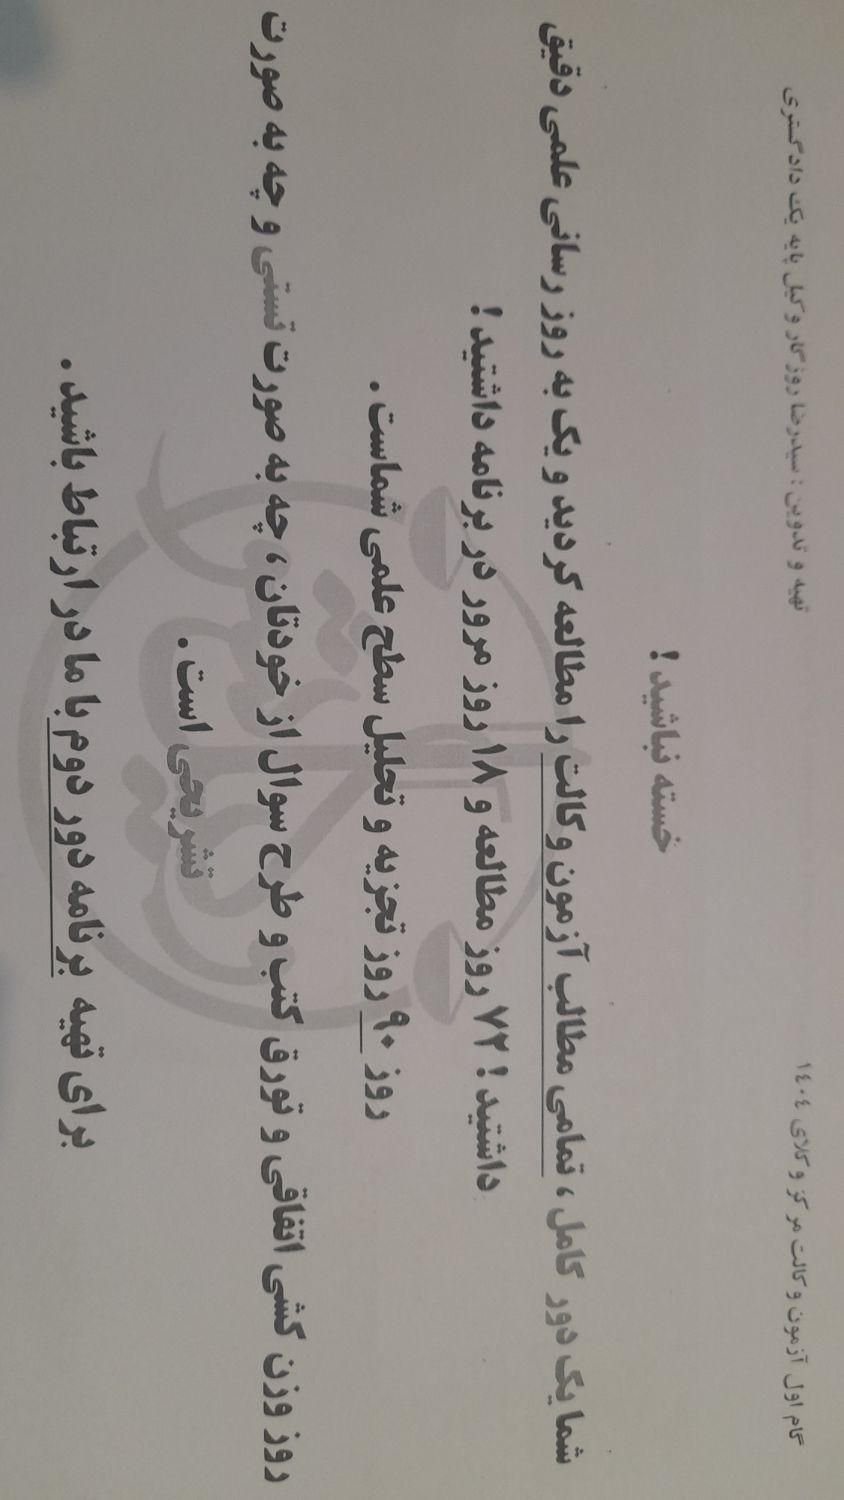 گام اول آزمون وکالت مرکز وکلای ۱۴۰۴
تهیه و تدوین : سیدرضا روزگار وکیل پایه یک دادگستری
خسته نباشید !
شما یک دور کامل ، تمامی مطالب آزمون وکالت را مطالعه کردید و یک به روز رسانی علمی دقیق
داشتید ! ۷۲ روز مطالعه و ۱۸ روز مرور در برنامه داشتید !
روز ۹۰ روز تجزیه و تحلیل سطح علمی شماست .
روز وزن کشی اتفاقی و تورق کتب و طرح سوال از خودتان ، چه به صورت تستی و چه به صورت
تشریحی است .
برای تهیه برنامه دور دوم با ما در ارتباط باشید .